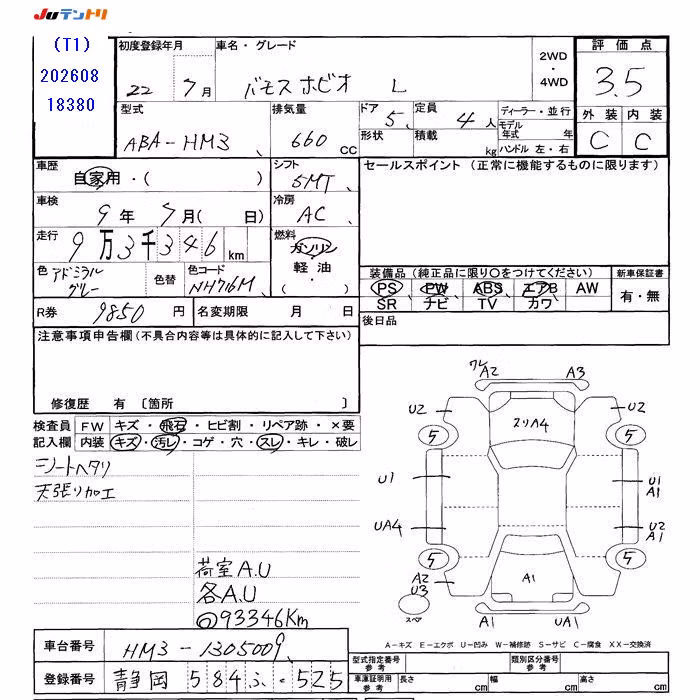 JUテントリ
(T1)
202608
18380
初度登録年月
22 年 7月
車名・グレード
バモスホビオ L
2WD
・
4WD
評価点
3.5
外装 内装
C C
型式
ABA-HM3
排気量
660 CC
ドア 5
形状
定員 4人
積載 kg
ディーラー・並行
モデル年式 年
ハンドル 左・右
車歴
自家用・( )
シフト
5MT
車検
9年 7月( 日)
冷房
AC
走行
9万3千346km
燃料
ガソリン・
軽油・
( )
色 アドミラルグレー
色替
色コード
NH716M
R券 9850円
名変期限 月 日
セールスポイント (正常に機能するものに限ります)
装備品 (純正品に限り○をつけてください)
PS PW ABS エアB AW
SR ナビ TV カワ
新車保証書
有・無
後日品
注意事項申告欄 (不具合内容等は具体的に記入して下さい)
修復歴 有 〔箇所 〕
検査員 FW キズ・飛石・ヒビ割・リペア跡・×要
記入欄 内装 キズ・汚レ・コゲ・穴・スレ・キレ・破レ
シートヘタリ
天張り加工
荷室A.U
各A.U
93346Km
ワレ A2 A3
U2 スリA4 U2
5 5
U1 U1
A1
UA4 U2
A1
5 5
A2
U3 A1
スペア A1 UA1
A-キズ E-エクボ U-凹み W-補修跡 S-サビ C-腐食 XX-交換済
車台番号 HM3-1305009
登録番号 静岡 584 ふ・525
型式指定番号
参考
類別区分番号
参考
車庫証明用
参考
長さ cm 幅 cm 高さ cm